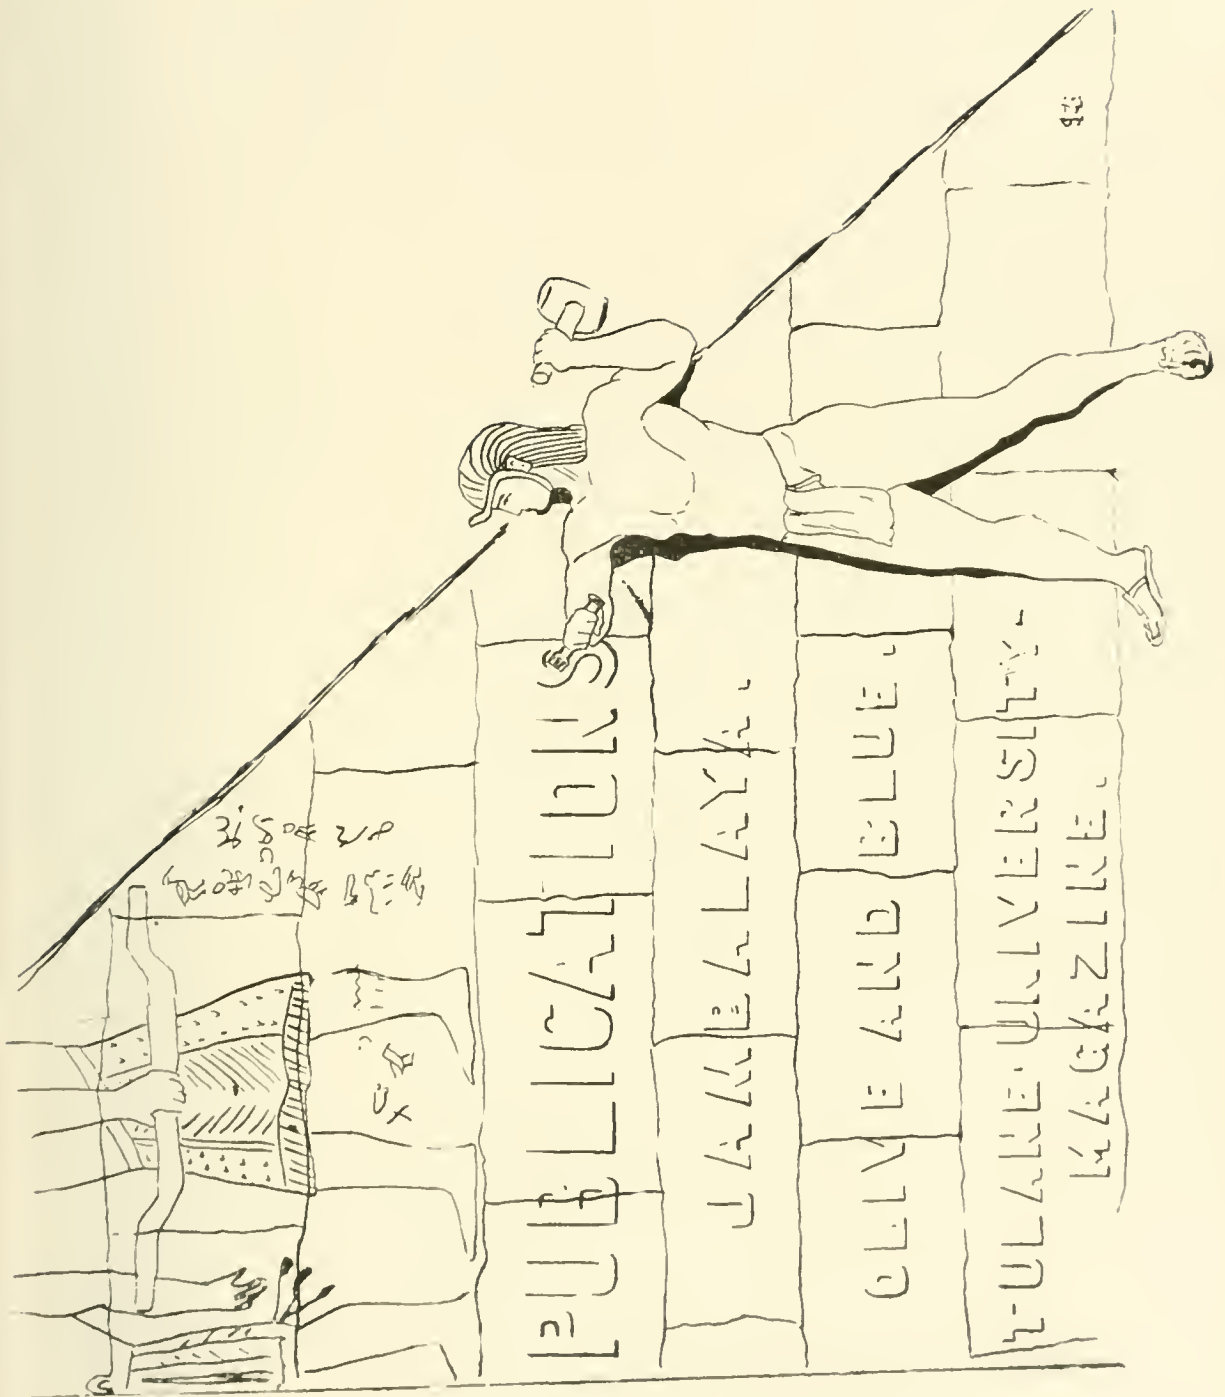 PUBLICATIONS
JAMBALAYA.
OLIVE AND BLUE.
TULANE·UNIVERSITY·
MAGAZINE.